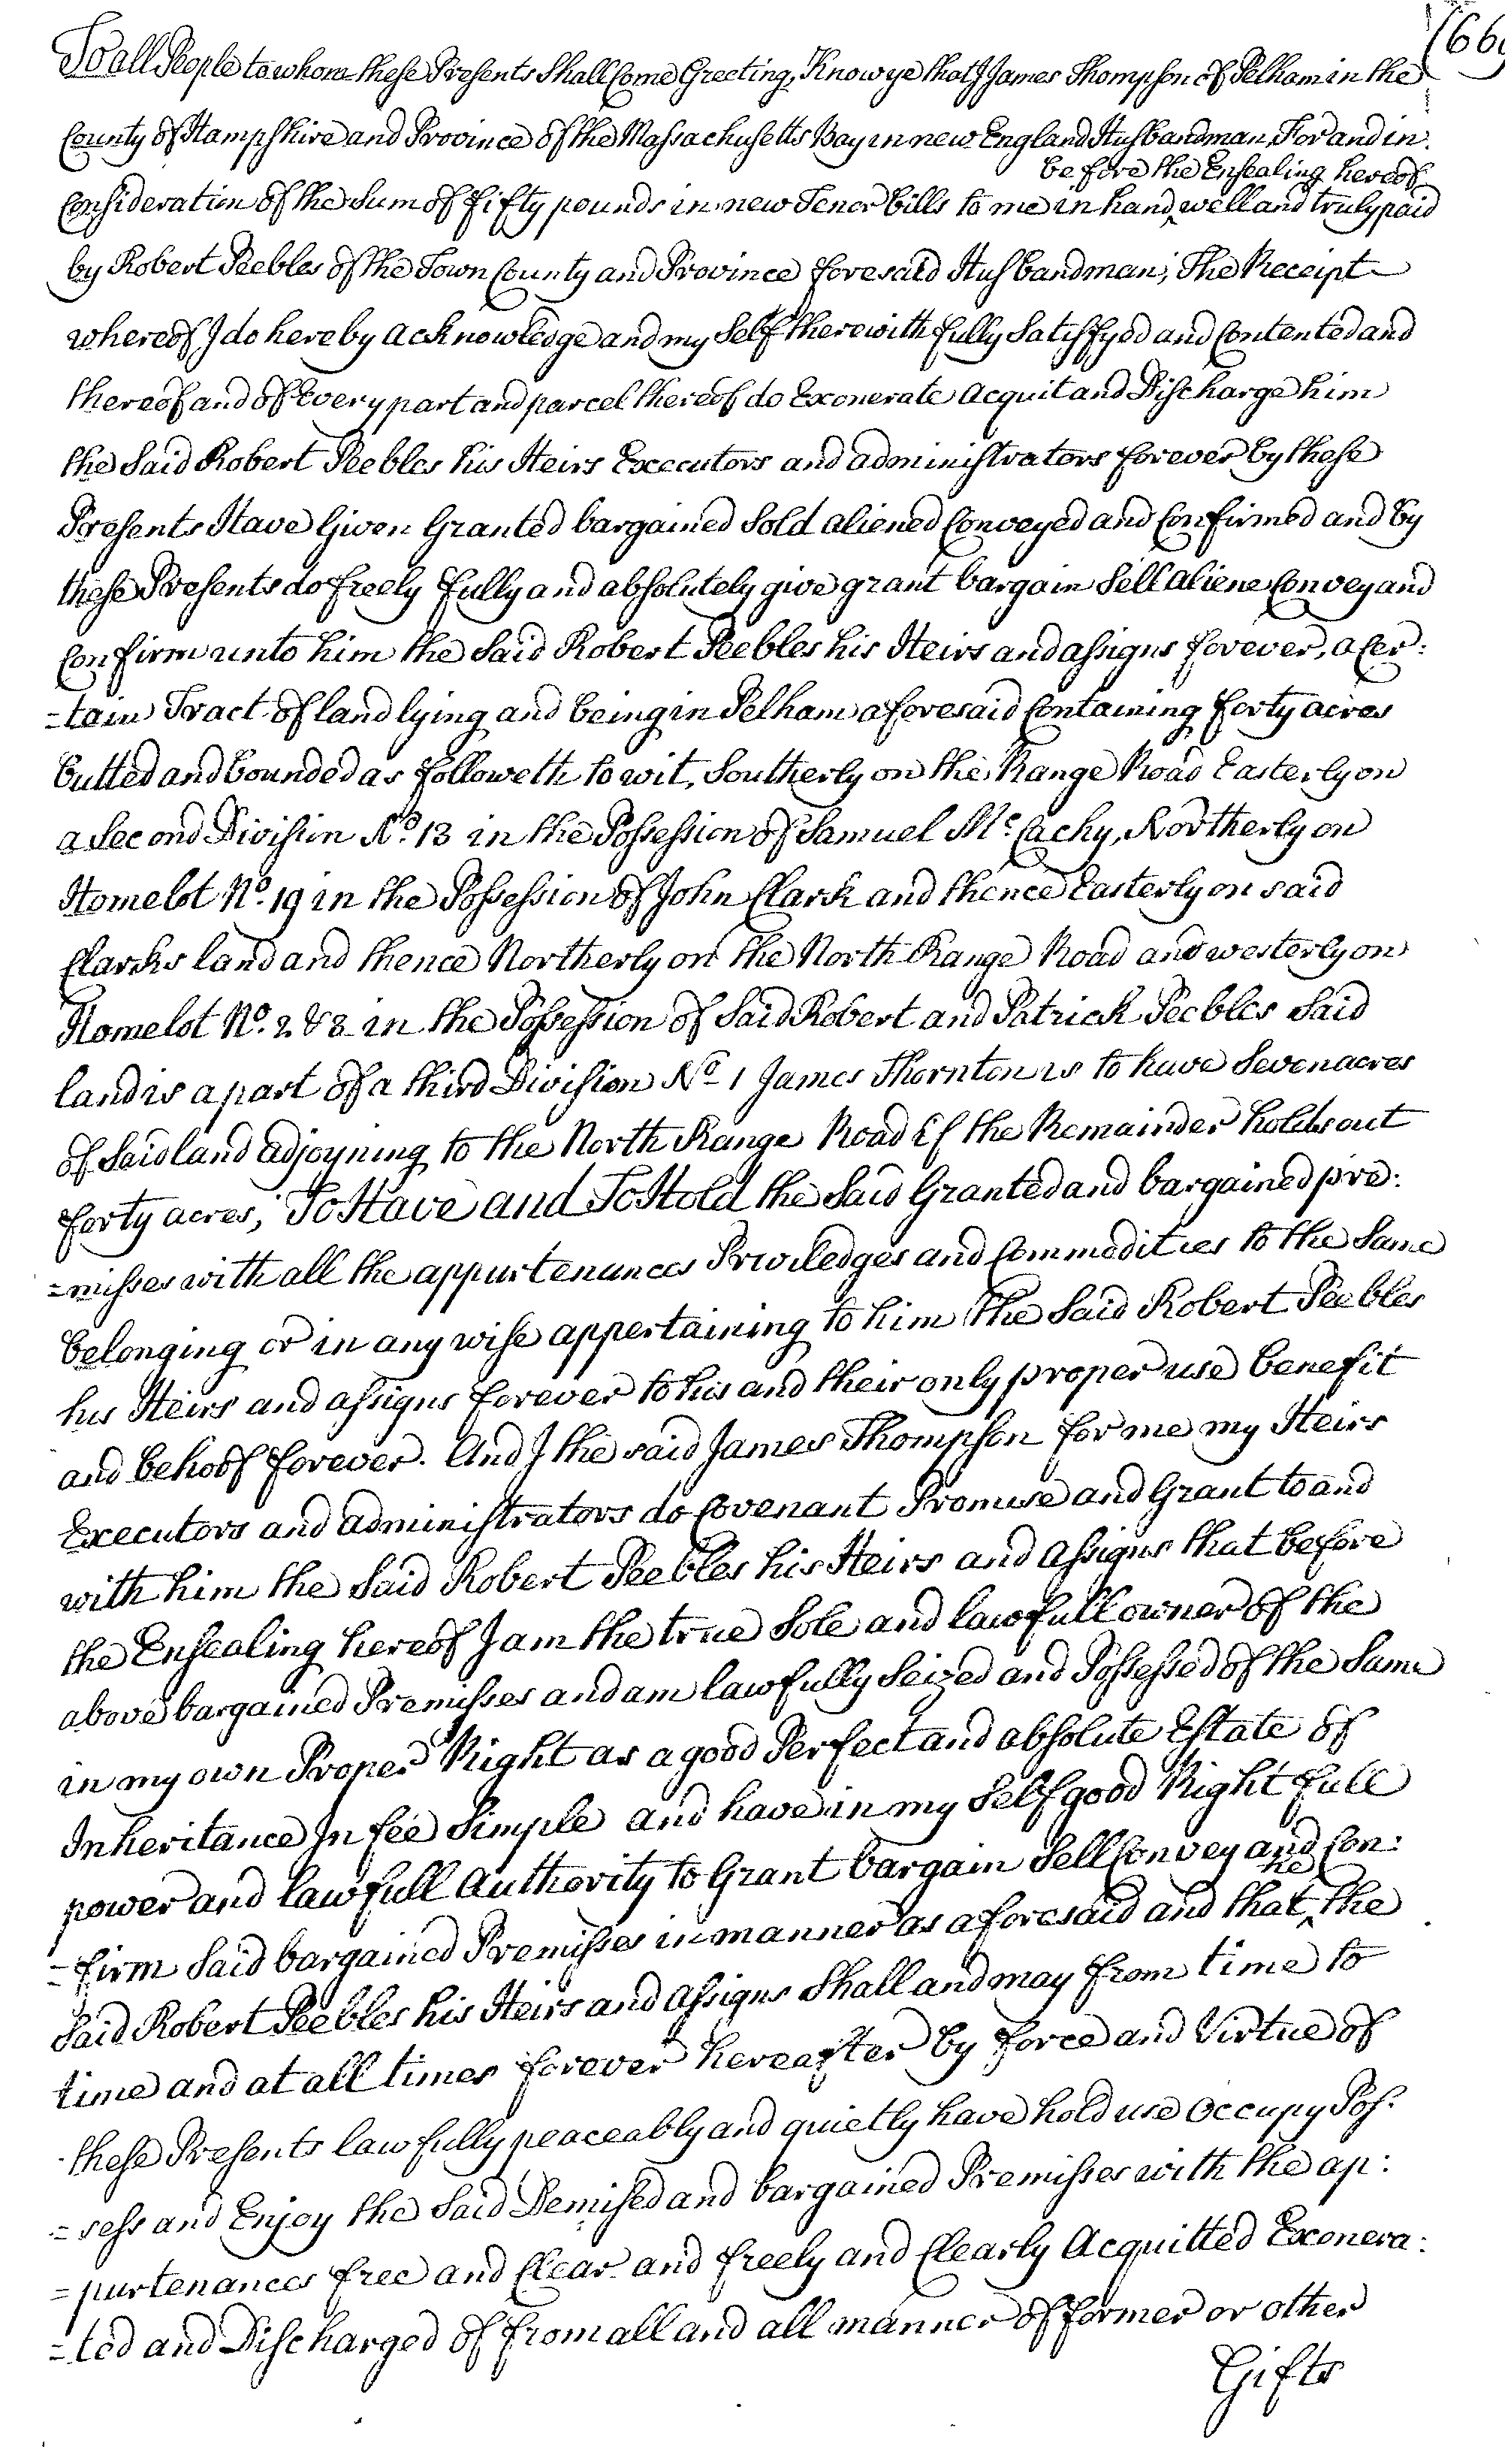 To all People to whom these Presents Shall Come Greeting, Know ye that I James Thompson of Pelham in the
County of Hampshire and Province of the Massachusetts Bay in new England Husbandman, For and in
before the Ensealing hereof
Consideration of the Sum of fifty pounds in new Tenor bills to me in hand ‸ well and truly paid
by Robert Peebles of the Town County and Province foresaid Husbandman, The Receipt
whereof I do hereby acknowledge and my Self therewith fully Satisfyed and Contented and
thereof and of Every part and parcel thereof do Exonerate acquit and Discharge him
the Said Robert Peebles his Heirs Executors and administrators forever by these
Presents Have Given Granted bargained Sold aliened Conveyed and Confirmed and by
these Presents do freely fully and absolutely give grant bargain Sell aliene Convey and
Confirm unto him the Said Robert Peebles his Heirs and assigns forever, a Cer:
=tain Tract of land lying and being in Pelham aforesaid Containing forty acres
butted and bounded as followeth to wit, Southerly on the Range Road Easterly on
a Second Division No. 13 in the Possession of Samuel Mc.Cachy, Northerly on
Homelot No. 19 in the Possession of John Clark and thence Easterly on said
Clarks land and thence Northerly on the North Range Road and westerly on
Homelot No. 2 & 3 in the Possession of Said Robert and Patrick Peebles Said
land is a part of a third Division No 1 James Thornton is to have Seven acres
of Said land adjoyning to the North Range Road if the Remainder holds out
forty acres; To Have and To Hold the Said Granted and bargained pre:
=misses with all the appurtenances Priviledges and Commodities to the Same
belonging or in any wise appertaining to him the Said Robert Peebles
his Heirs and assigns forever to his and their only proper use benefit
and behoof forever. And I the said James Thompson for me my Heirs
Executors and administrators do Covenant Promise and Grant to and
with him the Said Robert Peebles his Heirs and assigns that before
the Ensealing hereof I am the true Sole and lawfull owner of the
above bargained Premisses and am lawfully Seized and Possessed of the Same
in my own Proper Right as a good Perfect and absolute Estate of
Inheritance In fee Simple and have in my Self good Right full
power and lawfull Authority to Grant bargain Sell Convey and Con:
he
=firm Said bargained Premisses in manner as aforesaid and that ‸ the
Said Robert Peebles his Heirs and assigns Shall and may from time to
time and at all times forever hereafter by force and Virtue of
these Presents lawfully peaceably and quietly have hold use occupy Pos:
=sess and Enjoy the Said Demised and bargained Premisses with the ap:
=purtenances free and Clear and freely and Clearly Acquitted Exonera:
=ted and Discharged of from all and all manner of former or other
Gifts